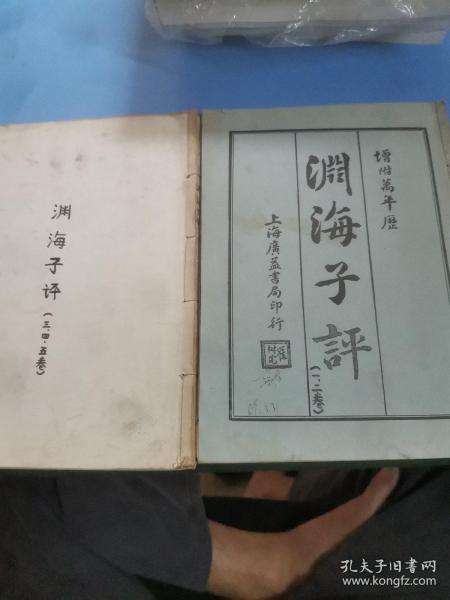 增附萬年歷
淵海子評
(一、二卷)
上海廣益書局印行
渊海子评
(三、四、五卷)
孔夫子旧书网
www.kongfz.com